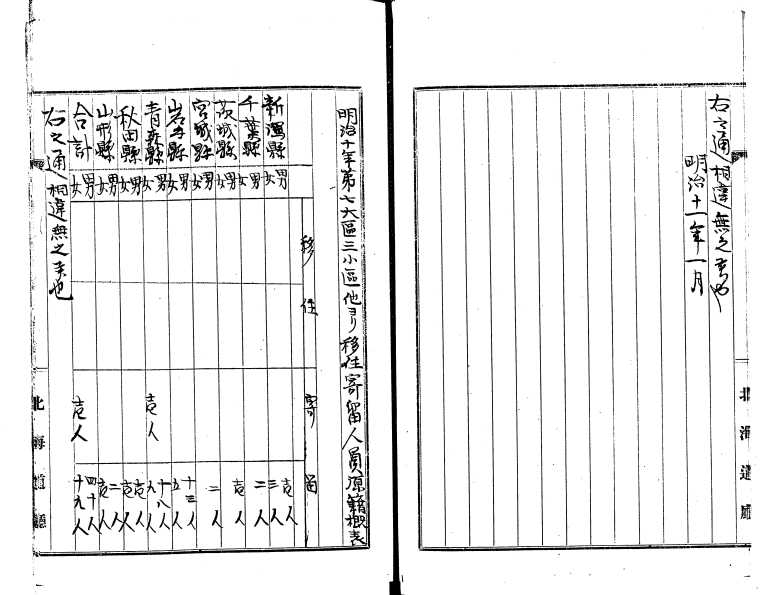 右之通相違無之者也
明治十一年一月
北海道廳
明治十年第七大區三小區他ヨリ移住寄留人員原籍概表
移住
寄留
新潟縣 男 壱人
女 三人
千葉縣 男 二人
女
茨城縣 男 壱人
女
宮城縣 男 二人
女
岩手縣 男 十三人
女 五人
青森縣 男 十八人
女 壱人 九人
秋田縣 男 壱人
女 壱人
山形縣 男 二人
女 壱人
合計 男 四十人
女 壱人 十九人
右之通相違無之者也
北海道廳